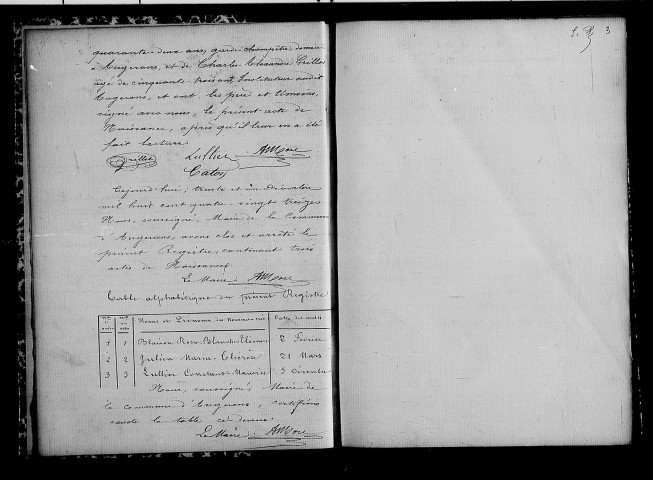 quarante deux ans, garde champêtre, demeurant
à Augerans, et de Charles Alexandre Grillot
âgé de cinquante trois ans, Instituteur audit
Augerans, et ont, les père et témoins,
signé avec nous, le présent acte de
Naissance, après qu'il leur en a été
fait lecture.
Grillot Lullier AMore
Caton
Cejourd'hui, trente et un Décembre
mil huit cent quatre-vingt treize,
Nous, soussigné, Maire de la Commune
d'Augerans, avons clos et arrêté le
présent Registre, contenant trois
actes de Naissances.
Le Maire, AMore
Table alphabétique du présent Registre
Noms et Prénoms du Nouveau-né Dates des actes
1 1 Rose Blanche 2 Février
2 2 Julien Maria Thérèse 21 Mars
3 3 Lullier Constant Maurice 5 Décembre
Nous, soussigné, Maire de
la commune d'Augerans, certifions
exacte la table ci-dessus.
Le Maire. AMore
3